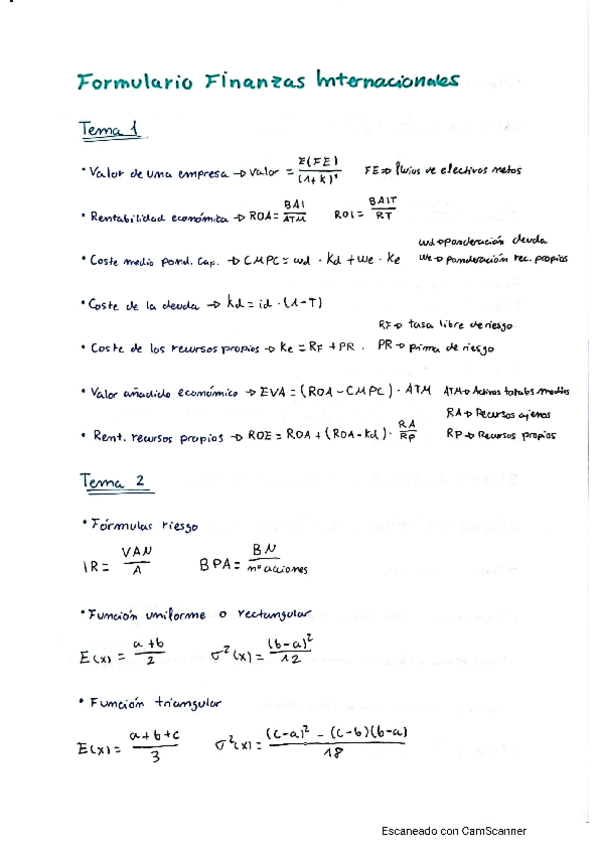 Formulario Finanzas Internacionales
Tema 1
• Valor de una empresa → Valor = E(FE) / (1+k)^1 FE → flujos de efectivos netos
• Rentabilidad económica → ROA = BAI / ATM ROI = BAIT / RT
wd → ponderación deuda
• Coste medio pond. cap. → CMPC = wd · Kd + we · Ke we → ponderación rec. propios
• Coste de la deuda → kd = id · (1-T)
RF → tasa libre de riesgo
• Coste de los recursos propios → Ke = RF + PR. PR → prima de riesgo
• Valor añadido económico → EVA = (ROA - CMPC) · ATM ATM → Activos totales medios
RA → Recursos ajenos
• Rent. recursos propios → ROE = ROA + (ROA - kd) · RA / RP RP → Recursos propios
Tema 2
• Fórmulas riesgo
IR = VAN / A BPA = BN / nº acciones
• Función uniforme o rectangular
E(x) = a+b / 2 σ²(x) = (b-a)² / 12
• Función triangular
E(x) = a+b+c / 3 σ²(x) = (c-a)² - (c-b)(b-a) / 18
Escaneado con CamScanner